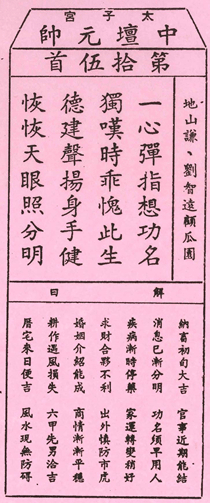 太子宮
中壇元帥
第拾伍首
地山謙、劉智遠顧瓜園
一心彈指想功名
獨嘆時乖愧此生
德建聲揚身手健
恢恢天眼照分明
解曰
納畜初旬大吉
官事近期能結
消息已漸分明
功名須早用人
疾病漸時停藥
家運轉變稍好
求財合夥不利
出外慎防市虎
婚姻介紹能成
商情漸漸平穩
耕作遇風損失
六甲先男洽吉
厝宅來日便吉
風水現無防碍